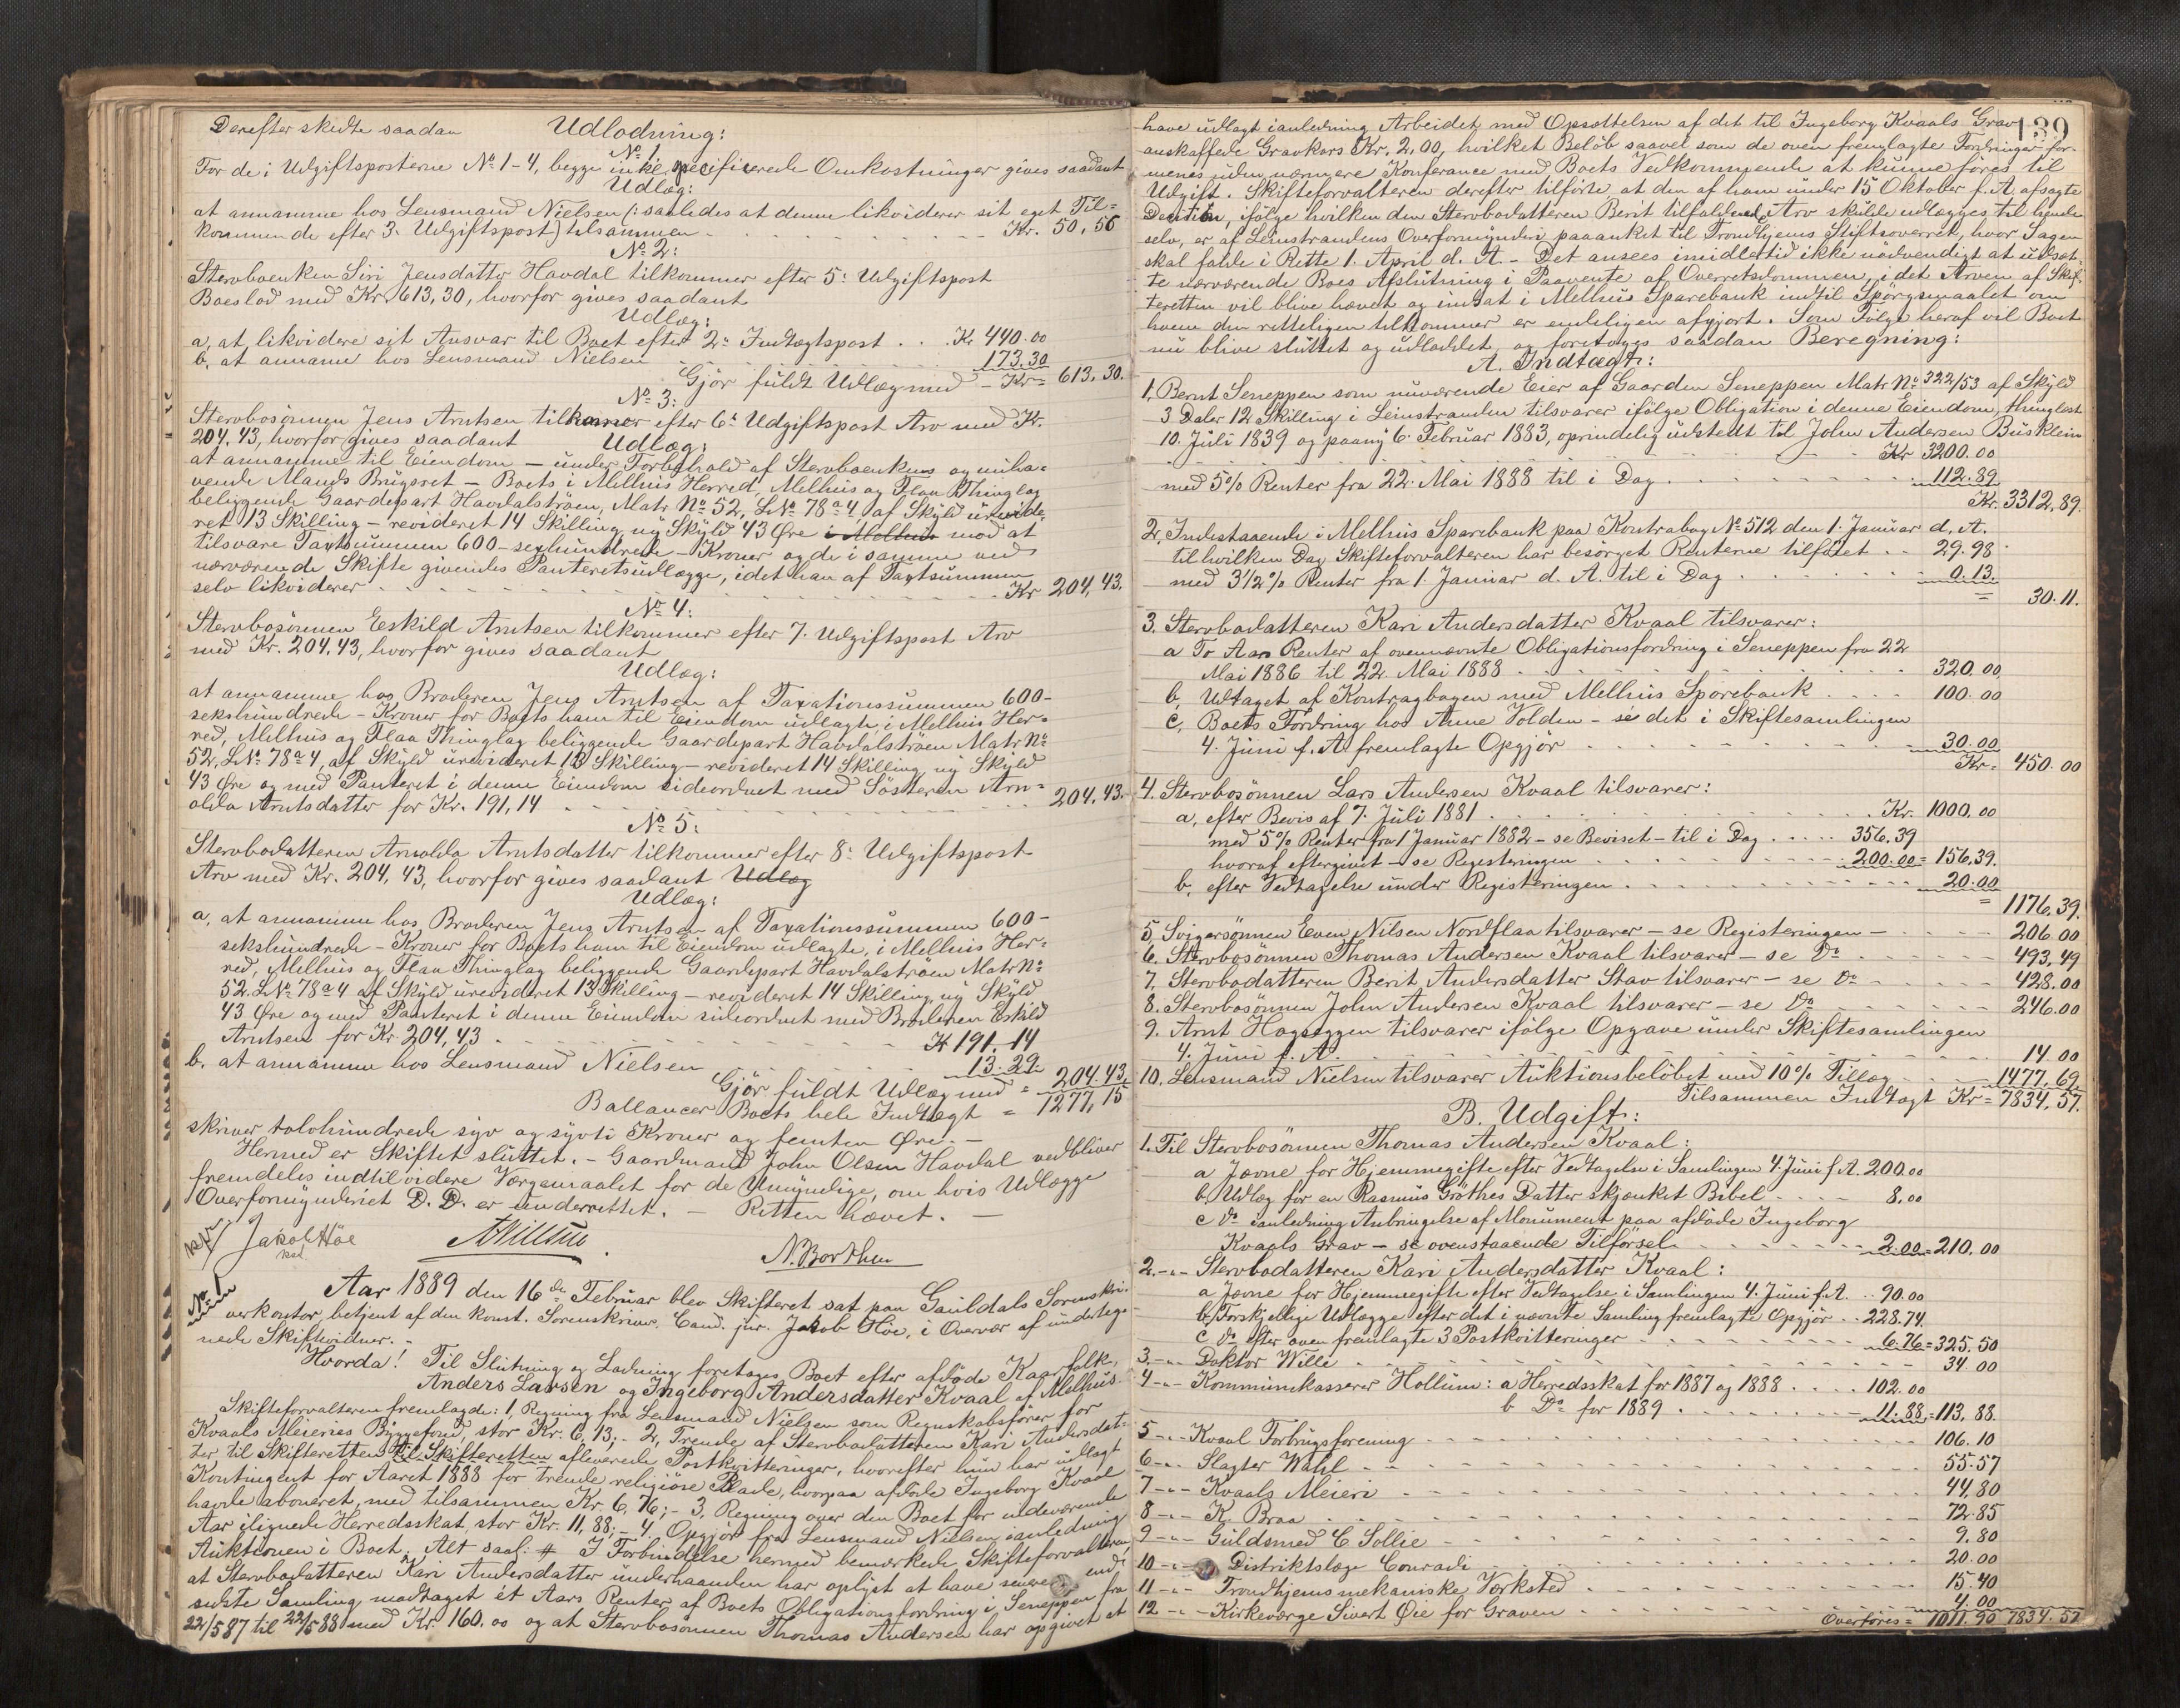 Derefter skedte saadan Udlodning:
No 1
For de i Udgiftsposterne No 1-4, begge inkl. specificerede Omkostninger gives saadant
Udlæg:
at annamme hos Lensmand Nielsen (: saaledes at denne likviderer sit eget Til=
kommende efter 3. Udgiftspost) tilsammen Kr. 50,56
No 2:
Stervboenken Siri Jensdatter Havdal tilkommer efter 5: Udgiftspost
Boeslod med Kr. 613,30, hvorfor gives saadant
Udlæg:
a, at likvidere sit Ansvar til Boet efter 2: Indtægtspost . . . Kr 440.00
b, at annamme hos Lensmand Nielsen 173.30
Gjør fuldt Udlæg med - Kr= 613,30.
No 3:
Stervbosønnen Jens Arntsen tilkommer efter 6: Udgiftspost Arv med Kr.
204,43, hvorfor gives saadant Udlæg:
at annamme til Eiendom – under Forbehold af Stervboenkens og
vende Mands Brugsret – Boets i Melhus Herred, Melhus og Flaa Thinglag
beliggende Gaardepart Havdalstrøen, Matr. No 52, LNo 78a4 af Skyld urevide-
ret 13 Skilling – revideret 14 Skilling ny Skyld 43 Øre i Melhus mod at
tilsvare Taxtsummen 600 – sexhundrede – Kroner og de i samme ved
nærværende Skifte givendes Panteretsudlægge, idet han af Taxtsummen
selv likviderer Kr 204,43.
No 4:
Stervbosønnen Eskild Arntsen tilkommer efter 7. Udgiftspost Arv
med Kr. 204,43, hvorfor gives saadant
Udlæg:
at annamme hos Broderen Jens Arntsen af Taxationssummen 600-
sekshundrede – Kroner for Boets ham til Eiendom udlagte, i Melhus Her-
red, Melhus og Flaa Thinglag beliggende Gaardepart Havdalstrøen Matr No
52, LNo 78a4, af Skyld urevideret 13 Skilling – revideret 14 Skilling ny Skyld
43 Øre og med Panteret i denne Eiendom sideordnet med Søsteren Arn=
olda Arntsdatter for Kr. 191,14 204,43.
No 5:
Stervbodatteren Arnolda Arntsdatter tilkommer efter 8: Udgiftspost
Arv med Kr. 204,43, hvorfor gives saadant Udlæg
Udlæg:
a, at annamme hos Broderen Jens Arntsen af Taxationssummen 600-
sekshundrede – Kroner for Boets ham til Eiendom udlagte, i Melhus Her-
red, Melhus og Flaa Thinglag beliggende Gaardepart Havdalstrøen Matr No
52. LNo 78a4 af Skyld urevideret 13 Skilling – revideret 14 Skilling, ny Skyld
43 Øre og med Panteret i denne Eiendom sideordnet med Broderen Eskild
Arntsen for Kr. 204,43 Kr 191.14
b. at annamme hos Lensmand Nielsen 13.29
Gjør fuldt Udlæg med = 204.43.
Ballancer Boets hele Indtægt = 1277,15
skriver tolvhundrede syv og sytti Kroner og femten Øre. –
Hermed er Skiftet sluttet. – Gaardmand John Olsen Havdal vedbliver
fremdeles indtil videre Værgemaalet for de Umyndige, om hvis Udlægge
Overformynderiet D. D. er underrettet. – Retten hævet. –
Jakob Høe
kst.
N. Borthen
No 1
Aar 1889 den 16de Februar blev Skifteret sat paa Gauldals Sorenskri-
verkontor, betjent af den konst. Sorenskriver, Cand. jur. Jakob Høe, i Overvær af underteg-
nede Skiftevidner. –
Hvorda! Til Slutning og Lodning foretages Boet efter afdøde Kaarfolk,
Anders Larsen og Ingeborg Andersdatter Kvaal af Melhus.
Skifteforvalteren fremlagde: 1, Regning fra Lensmand Nielsen som Regnskabsfører for
Kvaals Meieries Byggefond, stor Kr. 6,13; – 2, Trende af Stervbodatteren Kari Andersdat-
ter til Skifteretten til Skifteretten afleverede Postkvitteringer, hvorefter hun har udlagt
Kontingent for Aaret 1888 for trende religiøse Blade, hvorpaa afdøde Ingeborg Kvaal
havde aboneret, med tilsammen Kr. 6,76; – 3, Regning over den Boet for indeværende
Aar ilignede Herredsskat, stor Kr. 11,88; – 4, Opgjør fra Lensmand Nielsen i anledning
Auktionen i Boet. Alt saal: # I Forbindelse hermed bemærkede Skifteforvalteren,
at Stervbodatteren Kari Andersdatter underhaanden har oplyst at have senere end
sidste Samling modtaget ét Aars Renter af Boets Obligationsfordring i Seneppen fra
22/5 87 til 22/5 88 med Kr. 160.00 og at Stervbosønnen Thomas Andersen har opgivet at
139
have udlagt i anledning Arbeidet med Opsættelsen af det til Ingeborg Kvaals Grav
anskaffede Gravkors Kr. 2,00, hvilket Beløb saavel som de oven fremlagte Fordringer for-
menes uden nærmere Konferance med Boets Vedkommende at kunne føres til
Udgift. Skifteforvalteren derefter tilførte, at den af ham under 15 Oktober f. A. afsagte
Decision, ifølge hvilken den Stervbodatteren Berit tilfaldende Arv skulde udlægges til hende
selv, er af Leinstrandens Overformynderi paaanket til Trondhjems Stiftsoverret, hvor Sagen
skal falde i Rette 1. April d. A. – Det ansees imidlertid ikke nødvendigt at udsæt-
te nærværende Boes Afslutning i Paavente af Overretsdommen, idet Arven af Skif-
teretten vil blive hævet og indsat i Melhus Sparebank indtil Spørgsmaalet om
hvem den rettelig en tilkommer er endeligen afgjort. Som Følge heraf vil Boet
nu blive sluttet og udloddet, og foretoges saadan Beregning:
A. Indtægt:
1, Bernt Seneppen som nuværende Eier af Gaarden Seneppen Matr No 322/53 af Skyld
3 Daler 12 Skilling i Leinstranden tilsvarer ifølge Obligation i denne Eiendom, thinglæst
10. Juli 1839 og paany 6. Februar 1883, oprindelig udstedt til John Andersen Busklein
Kr 3200.00
med 5% Renter fra 22. Mai 1888 til i Dag 112.89
Kr. 3312,89.
2, Indestaaende i Melhus Sparebank paa Kontrabog No 512 den 1. Januar d. A.
til hvilken Dag Skifteforvalteren har besørget Renterne tilføiet . . 29.98
med 3 1/2 % Renter fra 1. Januar d. A. til i Dag 0.13.
= 30.11.
3. Stervbodatteren Kari Andersdatter Kvaal tilsvarer:
a To Aars Renter af ovennævnte Obligationsfordring i Seneppen fra 22
Mai 1886 til 22. Mai 1888 320.00,
b, Udtaget af Kontragbogen med Melhus Sparebank 100.00
c, Boets Fordring hos Anne Volden – se det i Skiftesamlingen
4. Juni f. A. fremlagte Opgjør 30.00
Kr= 450.00
4. Stervbosønnen Lars Andersen Kvaal tilsvarer:
a, efter Bevis af 7. Juli 1881 Kr. 1000.00
med 5% Renter fra 1 Januar 1882 – se Beviset – til i Dag 356.39
hvoraf eftergivet – se Registeringen 200.00 = 156,39.
b, efter Vedtagelse under Registeringen 20.00
= 1176,39.
5 Svigersønnen Even Nilsen Nordflaa tilsvarer – se Registeringen – 206.00
6. Stervbosønnen Thomas Andersen Kvaal tilsvarer – se Do 493,49
7, Stervbodatteren Berit Andersdatter Stav tilsvarer – se Do 428.00
8. Stervbosønnen John Andersen Kvaal tilsvarer – se Do 246.00
9. Arnt Hagseggen tilsvarer ifølge Opgave under Skiftesamlingen
4. Juni f. A. 14.00
10. Lensmand Nielsen tilsvarer Auktionsbeløbet med 10% Tillæg 1477,69.
Tilsammen Indtægt Kr= 7834,57.
B. Udgift:
1. Til Stervbosønnen Thomas Andersen Kvaal:
a Jævne for Hjemmegifte efter Vedtagelse i Samlingen 4. Juni f. A. 200.00
b, Udlæg for en Rasmus Grøthes Datter skjænket Bibel 8.00
c Do i anledning Anbringelse af Monument paa afdøde Ingeborg
Kvaals Grav – se ovenstaaende Tilførsel 2.00 = 210,00
2. -"- Stervbodatteren Kari Andersdatter Kvaal:
a Jævne for Hjemmegifte efter Vedtagelse i Samlingen 4. Juni f. A. . . 90.00
b, Forskjellige Udlægge efter det i nævnte Samling fremlagte Opgjør . . 228.74.
c Do efter oven fremlagte 3 Postkvitteringer 6.76 = 325.50
3. -"- Doktor Wille 34.00
4 -"- Kommunekasserer Hollum: a Herredsskat for 1887 og 1888 102.00
b Do for 1889 11.88 = 113,88.
5 -"- Kvaal Forbrugsforening 106.10
6 -"- Slagter Wahl 55.57
7 -"- Kvaals Meieri 44,80
8 -"- K. Braa 72.85
9 -"- Guldsmed C. Sollie 9.80
10 -"- Distriktslæge Conradi 20.00
11 -"- Trondhjems mekaniske Værksted 15.40
12 -"- Kirkeværge Sivert Øie for Graven 4.00
Overføres = 1011.90 7834.57